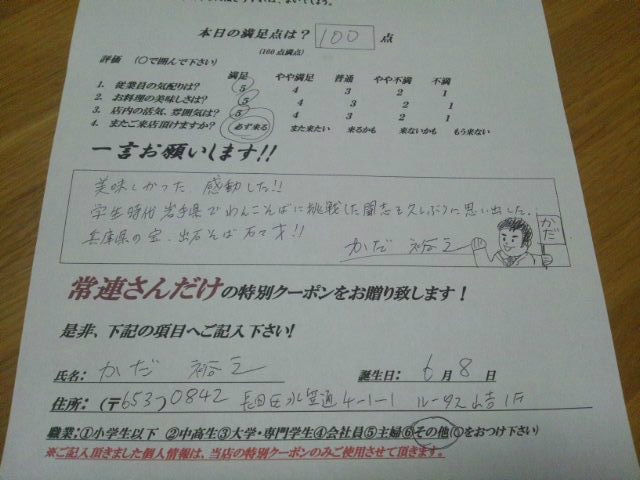 本日の満足点は？ 100 点
(100点満点)
評価 (○で囲んで下さい)
満足 やや満足 普通 やや不満 不満
1. 従業員の気配りは？ 5 4 3 2 1
2. お料理の美味しさは？ 5 4 3 2 1
3. 店内の活気、雰囲気は？ 5 4 3 2 1
4. またご来店頂けますか？ 必ず来る また来たい 来るかも 来ないかも もう来ない
一言お願いします!!
美味しかった 感動した!!
学生時代 岩手県でわんこそばに挑戦した闘志を久しぶりに思い出した.
兵庫県の宝、出石そば 万才!!
かだ
かだ 裕之
常連さんだけの特別クーポンをお贈り致します！
是非、下記の項目へご記入下さい!
氏名： かだ 裕之 誕生日： 6 月 8 日
住所： (〒653)0842 長田区水笠通4-1-1 1F
職業：①小学生以下 ②中高生③大学・専門学生④会社員⑤主婦⑥その他(○をおつけ下さい)
※ご記入頂きました個人情報は、当店の特別クーポンのみご使用させて頂きます。